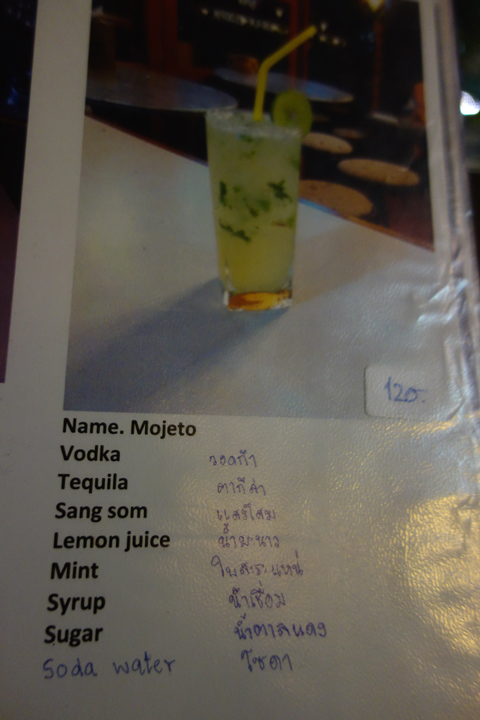 120.-
Name. Mojeto
Vodka วอดก้า
Tequila ตากีล่า
Sang som แสงโสม
Lemon juice น้ำมะนาว
Mint ใบสะระแหน่
Syrup น้ำเชื่อม
Sugar น้ำตาลแดง
Soda water โซดา